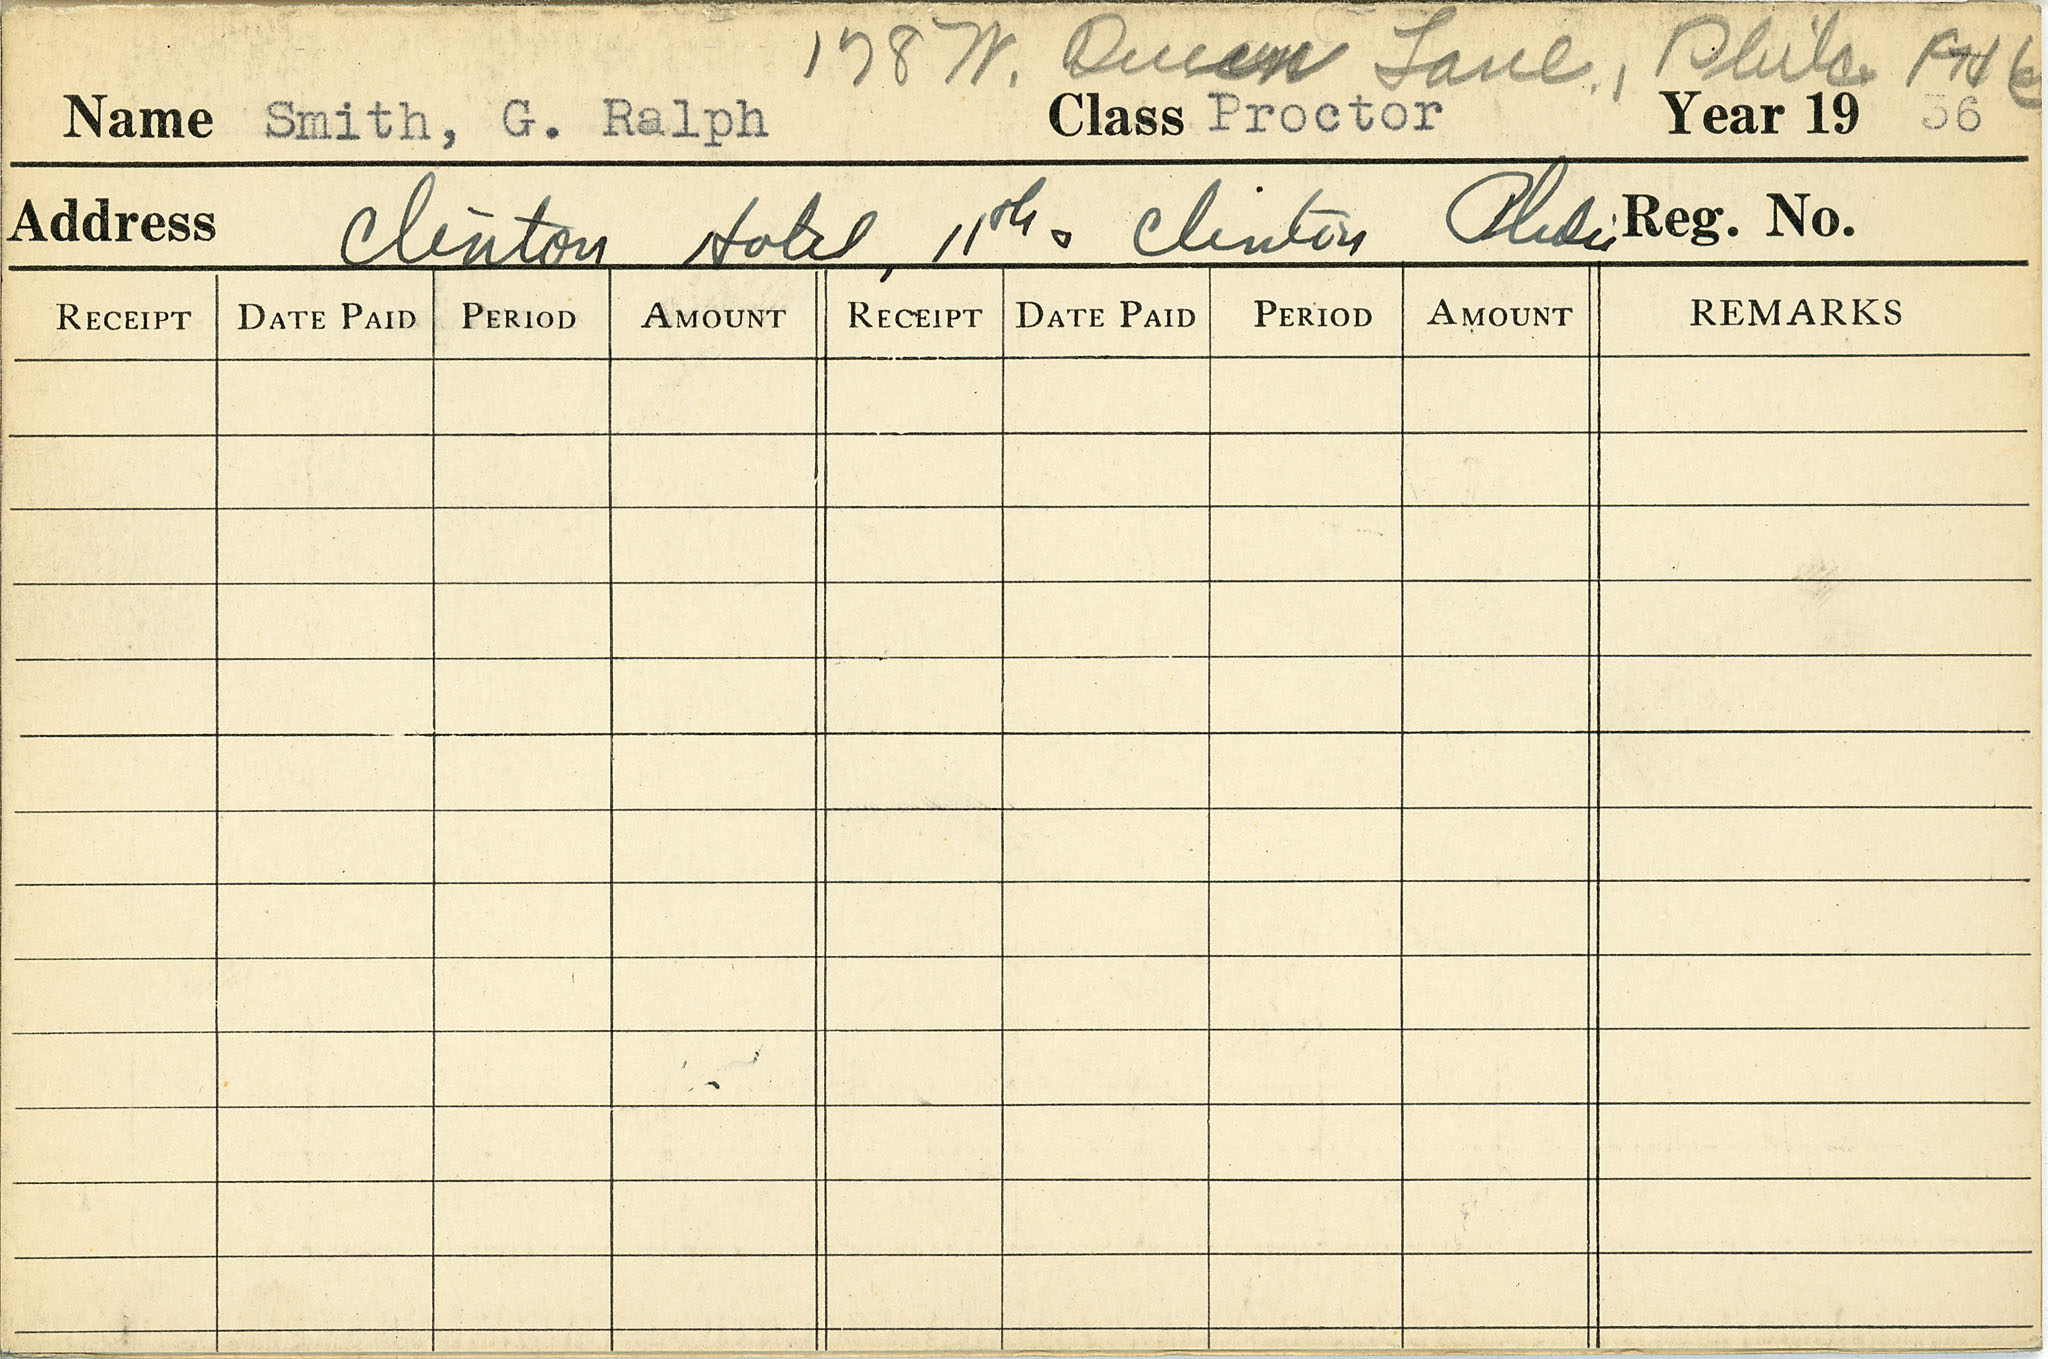 178 W. Queen Lane., Phila.
Name Smith, G. Ralph Class Proctor Year 19 36
Address Clinton Hotel, 11th & Clinton Phila Reg. No.
RECEIPT DATE PAID PERIOD AMOUNT RECEIPT DATE PAID PERIOD AMOUNT REMARKS